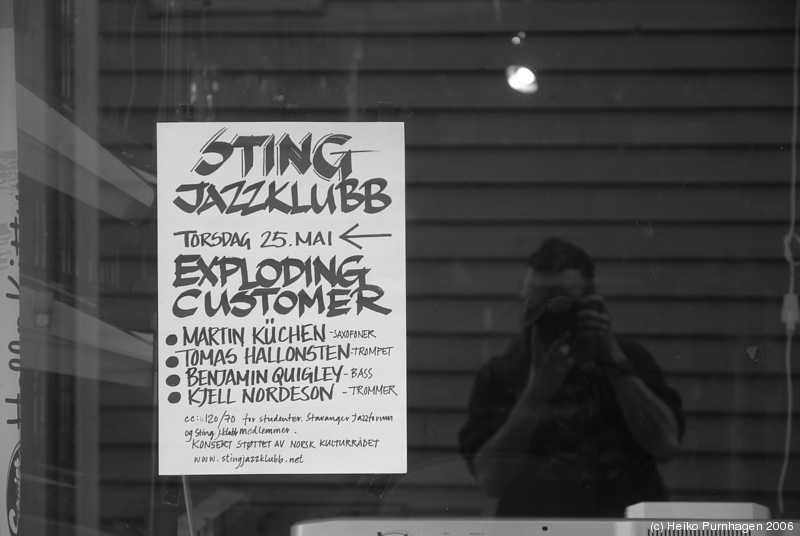 STING
JAZZKLUBB
TORSDAG 25. MAI ←
EXPLODING
CUSTOMER
● MARTIN KÜCHEN - SAXOFONER
● TOMAS HALLONSTEN - TROMPET
● BENJAMIN QUIGLEY - BASS
● KJELL NORDESON - TROMMER
cc: 120/70 for studenter. Stavanger Jazzforum
og Sting j.klubb medlemmer.
KONSERT STØTTET AV NORSK KULTURRÅDET
www.stingjazzklubb.net
(c) Heiko Purnhagen 2006